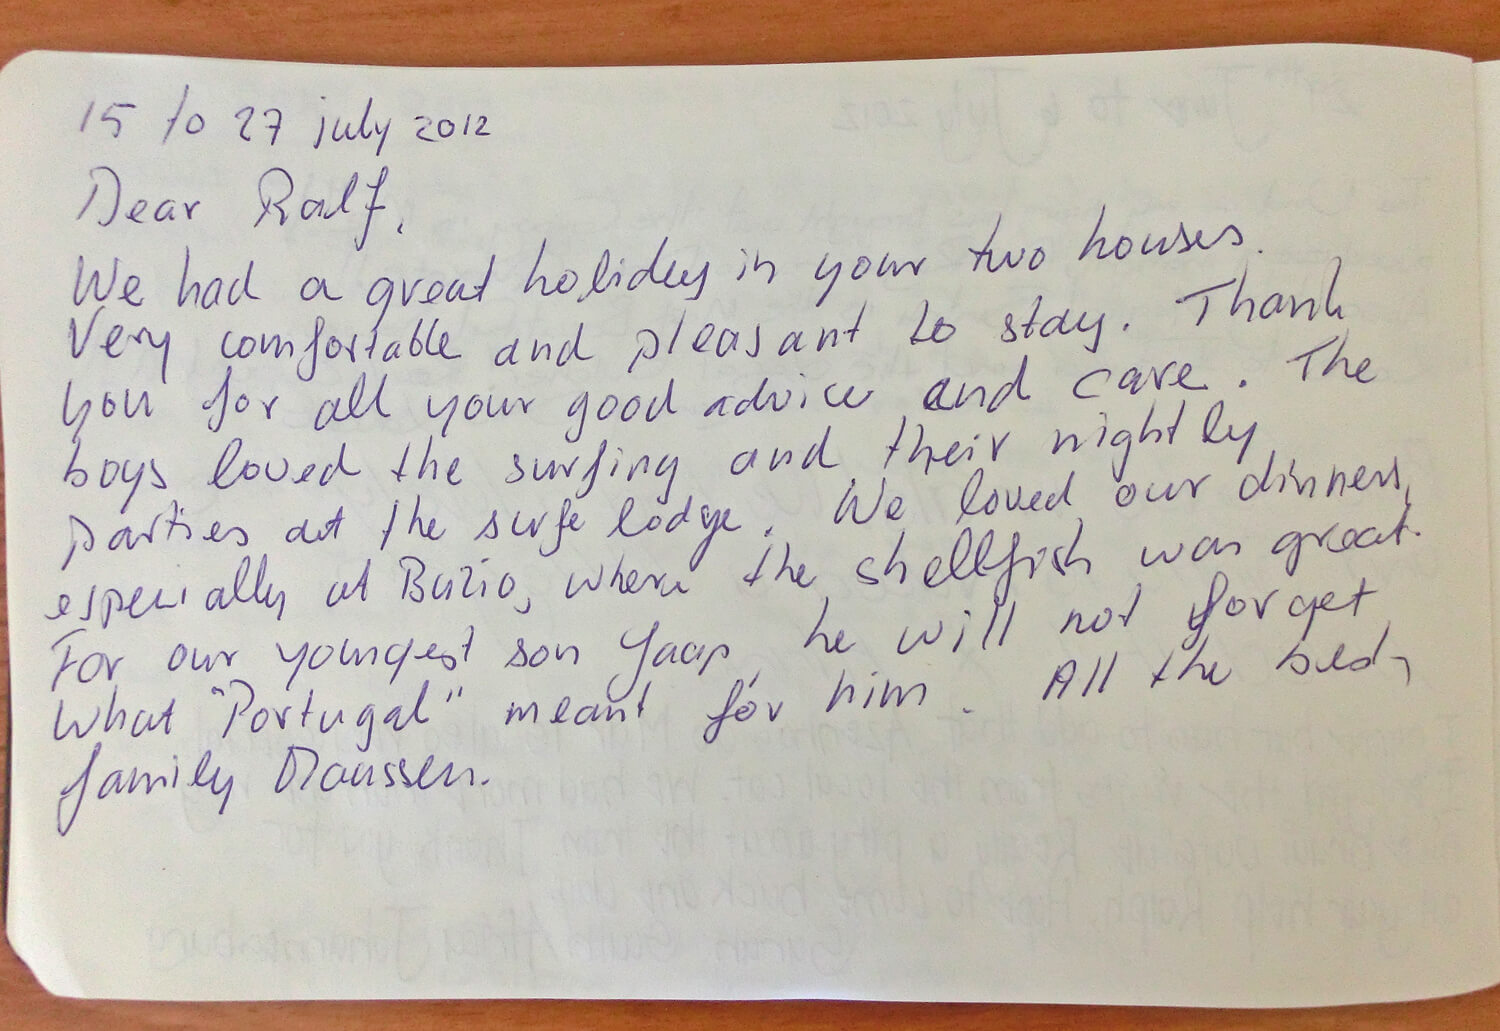 15 to 27 july 2012
Dear Ralf,
We had a great holiday in your two houses.
Very comfortable and pleasant to stay. Thank
you for all your good advice and care. The
boys loved the surfing and their nightly
parties at the surfe lodge. We loved our dinners,
especially at Buzio, where the shellfish was great.
For our youngest son Jaap, he will not forget
what "Portugal" meant for him. All the best,
family Maassen.